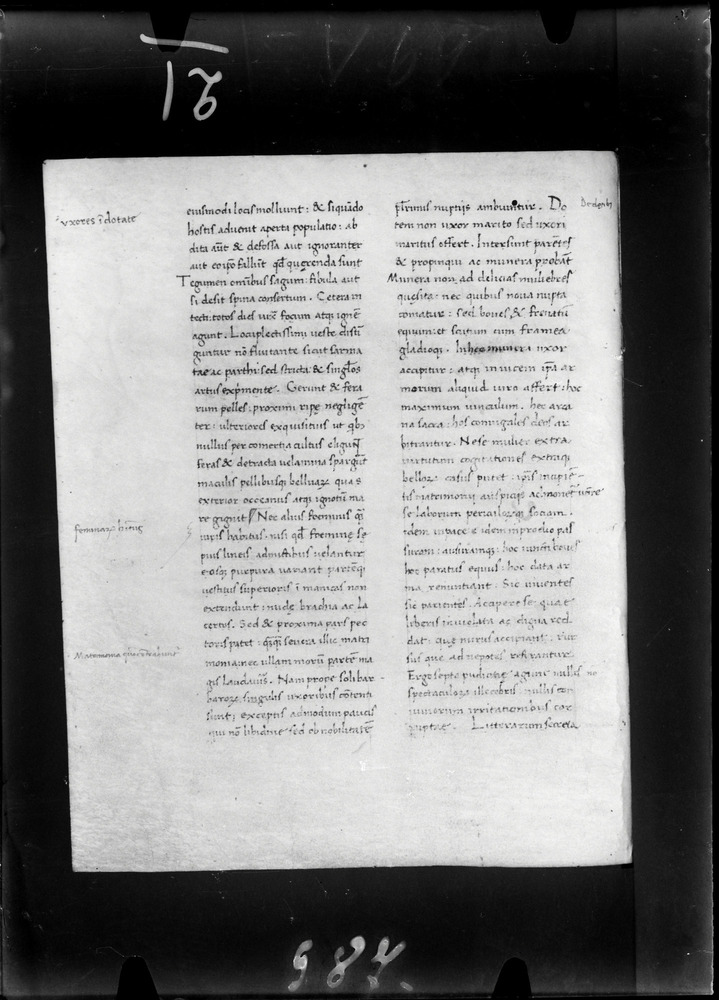 uxores īdotate
eiusmodi locis molliunt: & siquādo
hostis aduenit aperta populatio: ab
dita aūt & defossa aut ignorantur
aut eoipō fallūt qđ querenda sunt
Tegumen omībus sagum: fibula aut
si desit spina consertum. Cetera in
tecti: totos dies iuxͣ focum atqȝ ignē
agunt. Locupletissimi ueste disti
guntur nō fluitante sicut sarma
tae ac parthi: sed stricta & singl̄os
artus exp̄mente. Gerunt & fera
rum pelles: proximi ripę negligē
ter: ulteriores exquisitius ut qͥbȝ
nullus per comertia cultus eligunt
feras & detracta uelamina spargūt
maculis pellibusqȝ belluaꝝ quas
exterior occeanus atqȝ ignotū ma
re gignit // Nec alius foeminis qͣȝ
uiris habitus. nisi qđ foeminę sę
pius lineis admictibus uelantur
eosqȝ purpura uariant partēqȝ
uestitus superioris ī manicas non
extendunt: nudę brachia ac la
certos. Sed & proxima pars pec
toris patet: qͣqͣ seuera illic matri
monia: nec ullam morū partē ma
gis laudaueris. Nam prope soli bar-
baroꝝ singulis uxoribus cōtenti
sunt: exceptis admodum paucis
qui nō libidine sed ob nobilitatē
feminaꝝ hītus
Matrimonia
plurimis nuptijs ambiuntur. Do
tem non uxor marito sed uxori
maritus offert. Intersunt parētes
& propinqui ac munera probāt
Munera non ad delicias muliebres
quęsita: nec quibus noua nupta
comatur: sed boues & frenatū
equum: et scutum cum framea
gladioqȝ. In hęc munera uxor
accipitur: atqȝ in uicem ipā ar
morum aliquid uiro affert: hoc
maximum uinculum. hec arca
na sacra: hos coniugales deos ar
bitrantur. Ne se mulier extra
uirtutum cogitationes extraqȝ
belloꝝ casus putet: ipīs incipiē-
tis matrimonij auspicijs admonet uēire
se laborum periculoꝝqȝ sociam.
idem in pace idem in proelio pas
suram: ausuramqȝ: hoc iuncti boues
hoc paratus equus: hoc data ar
ma renuntiant. Sic uiuentes
sic parientes. Accipere se quę
liberis inuiolata ac digna red
dat: quę nurus accipiant: rur
susque ad nepotes referantur.
Ergo septe pudicitia agunt nullis
spectaculoꝝ illecebris: nullis con
uiuiorum irritationibus cor
ruptae. Litterarum secreta
12
984.